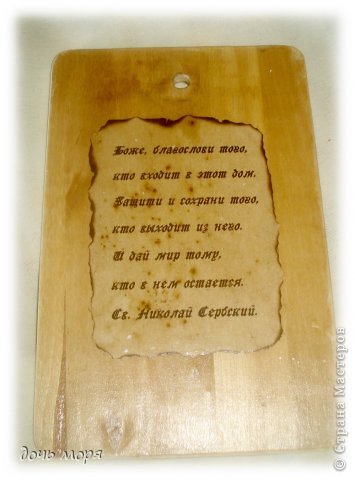 Боже, благослови того,
кто входит в этот дом.
Защити и сохрани того,
кто выходит из него.
И дай мир тому,
кто в нем остается.
Св. Николай Сербский.
дочь моря
© Страна Мастеров